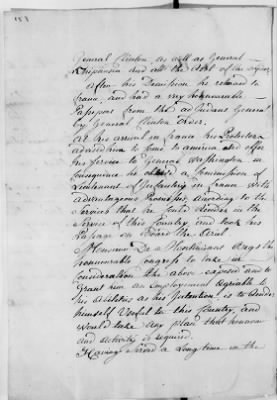 General Clinton, as well as General
and all the rest of the
after his Demission he returned to
france, and had a very honourable
Passport from the adjudant General
by General Clinton Order.
at his arrival in france his Protectors
advised him to Come to america and offer
his Service to General Washington in
Consequence he obtained a Commission of
Lieutenant of Infantry in france with
advantageous Promises, according to the
Services that he Could Render in the
Service of this Country, and took his
Passage on Board the
Monsieur De Montcinant Begs the
honnourable Congress to take in
Consideration the above exposed and to
grant him an Employement agreable to
his abilities as his Intention is to Render
himself Usefull to this Country, and
would take any place that honnour
and activity is required.
Having Served a Long time in the